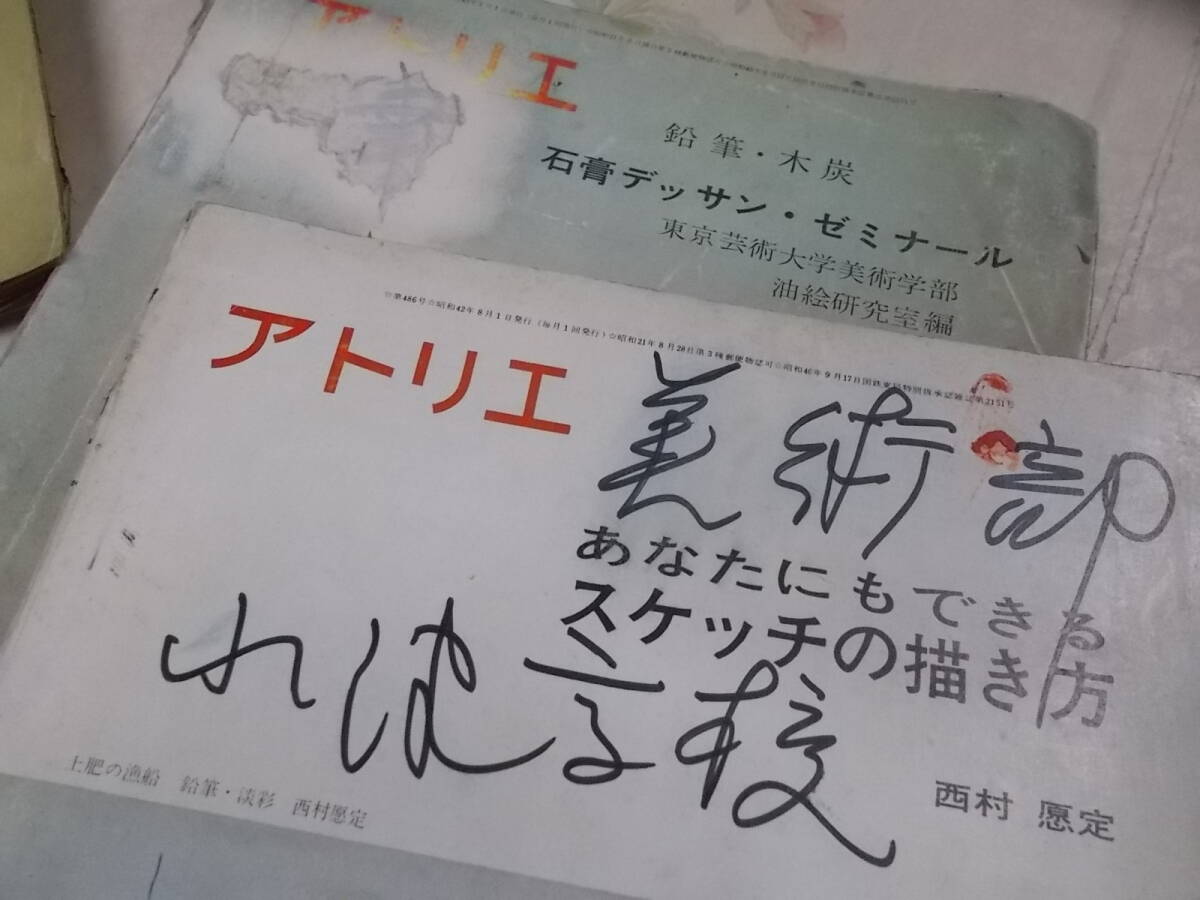 アトリエ
鉛筆・木炭
石膏デッサン・ゼミナール
東京芸術大学美術学部
油絵研究室編
☆第486号☆昭和42年8月1日発行(毎月1回発行)☆昭和21年8月28日第3種郵便物認可☆昭和40年9月17日国鉄東局特別扱承認雑誌第2151号
アトリエ
美術部
あなたにもできる
スケッチの描き方
小池学校
西村 愿定
土肥の漁船 鉛筆・淡彩 西村愿定